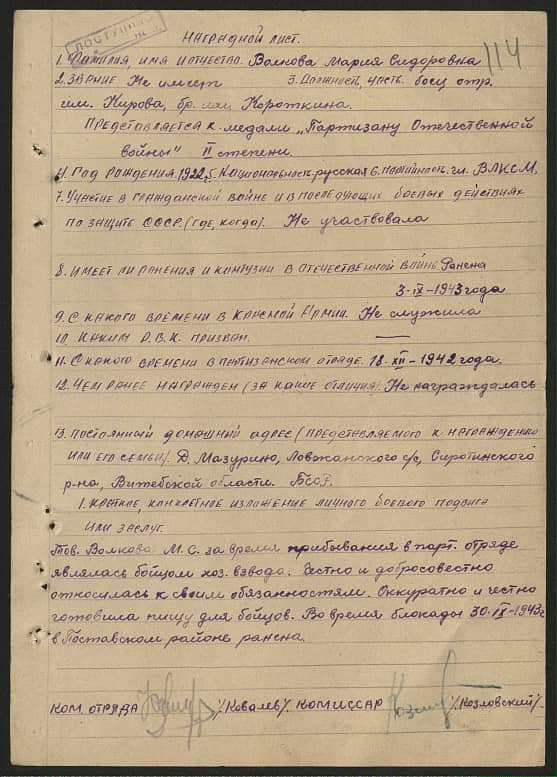 ПОСТУПИЛ
114
НАГРАДНОЙ ЛИСТ.
1. ФАМИЛИЯ, ИМЯ И ОТЧЕСТВО. Волкова Мария Сидоровна
2. ЗВАНИЕ Не имеет 3. ДОЛЖНОСТЬ, ЧАСТЬ. боец отр.
им. Кирова, бр. им. Короткина.
ПРЕДСТАВЛЯЕТСЯ К медали „Партизану Отечественной
войны" II степени.
4. ГОД РОЖДЕНИЯ. 1922. 5. НАЦИОНАЛЬНОСТЬ-русская 6. ПАРТИЙНОСТЬ. чл. ВЛКСМ.
7. УЧАСТИЕ В ГРАЖДАНСКОЙ ВОЙНЕ И В ПОСЛЕДУЮЩИХ БОЕВЫХ ДЕЙСТВИЯХ
ПО ЗАЩИТЕ СССР. (ГДЕ, КОГДА). Не участвовала
8. ИМЕЕТ ЛИ РАНЕНИЯ И КОНТУЗИИ В ОТЕЧЕСТВЕННОЙ ВОЙНЕ Ранена
3-IX-1943 года
9. С КАКОГО ВРЕМЕНИ В КРАСНОЙ АРМИИ. Не служила
10. КАКИМ Р.В.К. ПРИЗВАН. —
11. С КАКОГО ВРЕМЕНИ В ПАРТИЗАНСКОМ ОТРЯДЕ. 18-XII-1942 года.
12. ЧЕМ РАНЕЕ НАГРАЖДЕН (ЗА КАКИЕ ОТЛИЧИЯ). Не награждалась
13. ПОСТОЯННЫЙ ДОМАШНИЙ АДРЕС (ПРЕДСТАВЛЯЕМОГО К НАГРАЖДЕНИЮ
ИЛИ ЕГО СЕМЬИ). Д. Мазурино, Ловжанского с/с, Сиротинского
р-на, Витебской области. БССР.
1. КРАТКОЕ, КОНКРЕТНОЕ ИЗЛОЖЕНИЕ ЛИЧНОГО БОЕВОГО ПОДВИГА
ИЛИ ЗАСЛУГ.
Тов. Волкова М.С. за время прибывания в парт. отряде
являлась бойцом хоз. взвода. Честно и добросовестно
относилась к своим обязанностям. Оккуратно и честно
готовила пищу для бойцов. Во время блокады 30-IX-1943г
в Поставском районе ранена.
КОМ. ОТРЯДА /Ковалев/. КОМИССАР /Козловский/.